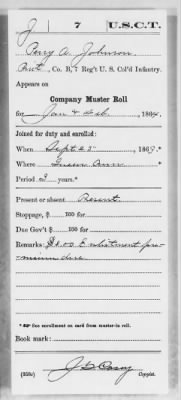 J 7 U.S.C.T.
Perry A. Johnson
Pvt, Co. B, 7 Reg't U. S. Col'd Infantry.
Appears on
Company Muster Roll
for Jan & Feb, 1864.
Joined for duty and enrolled:
When Sept 25, 1863.*
Where Queen Ann
Period 3 years.*
Present or absent Present
Stoppage, $ 100 for
Due Gov't $ 100 for
Remarks: Enlistment pre-
mium due.
* See enrollment on card from muster-in roll.
Book mark:
(358c) Copyist.